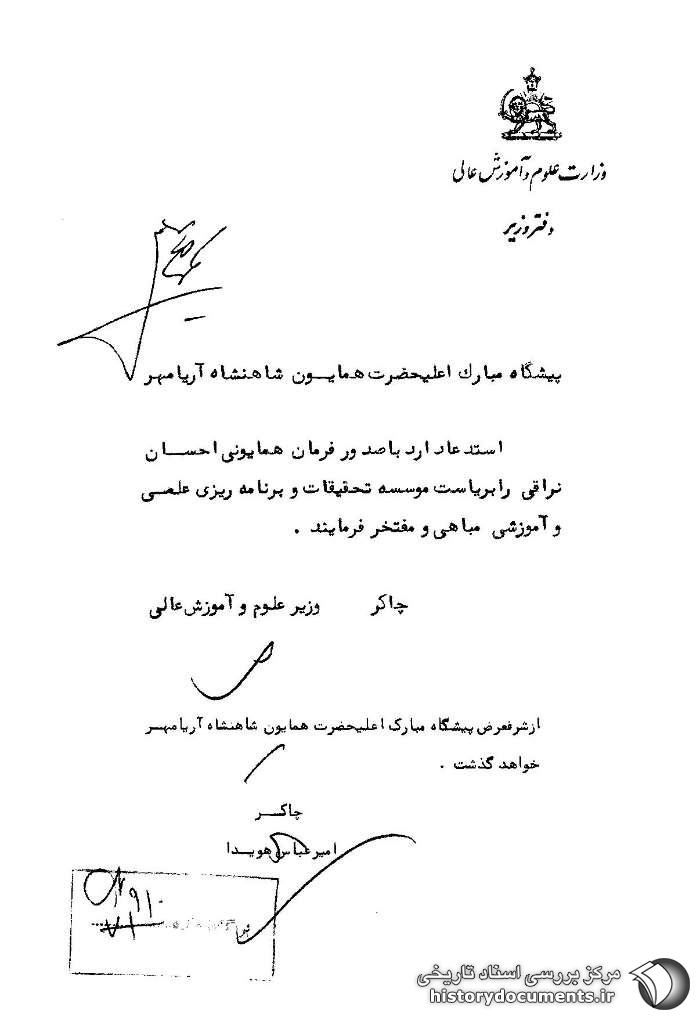 وزارت علوم و آموزش عالی
دفتر وزیر
پیشگاه مبارک اعلیحضرت همایون شاهنشاه آریامهر
استدعا دارد با صدور فرمان همایونی احسان
نراقی را بریاست موسسه تحقیقات و برنامه ریزی علمی
و آموزشی مباهی و مفتخر فرمایند .
چاکر وزیر علوم و آموزش عالی
از شرفعرض پیشگاه مبارک اعلیحضرت همایون شاهنشاه آریامهر
خواهد گذشت .
چاکر
امیر عباس هویدا
مرکز بررسی اسناد تاریخی
historydocuments.ir